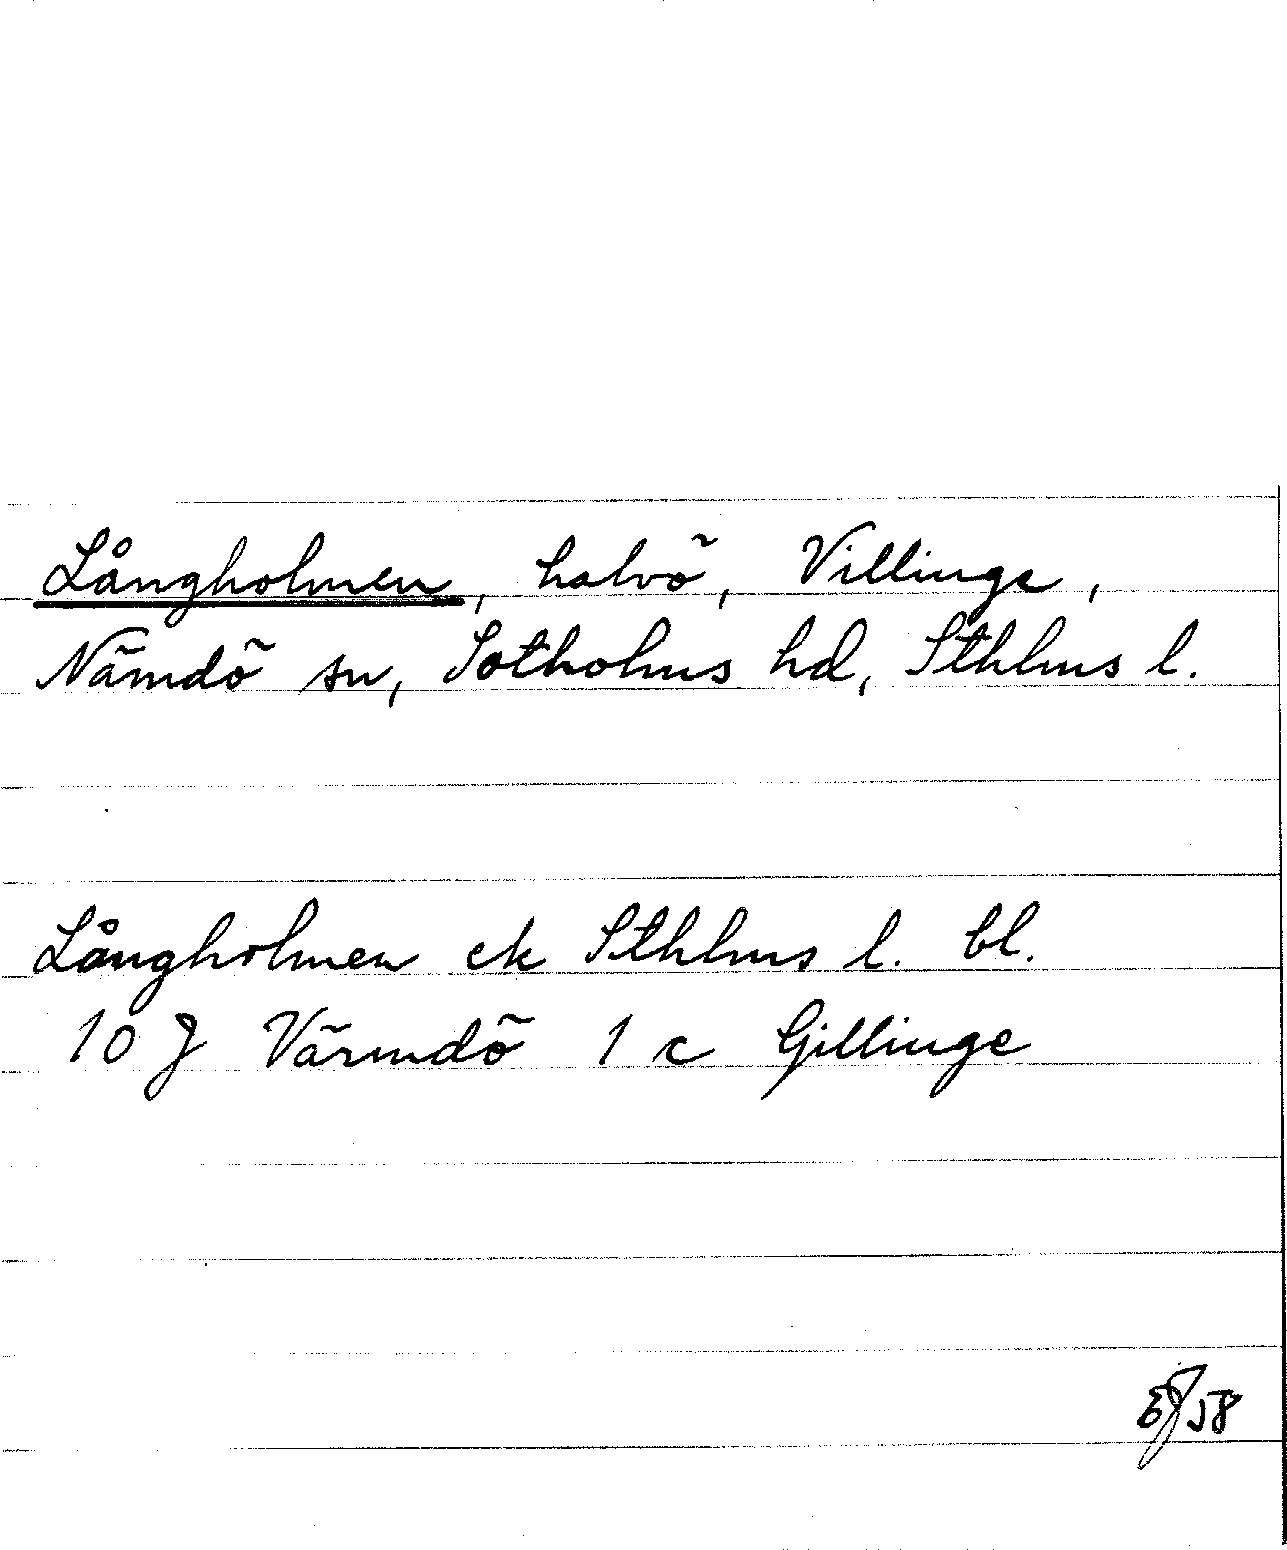 Långholmen, halvö, Villinge,
Nämdö sn, Sotholms hd, Sthlms l.
Långholmen ek Sthlms l. bl.
10 J Värmdö 1 c Gillinge
EJ 58